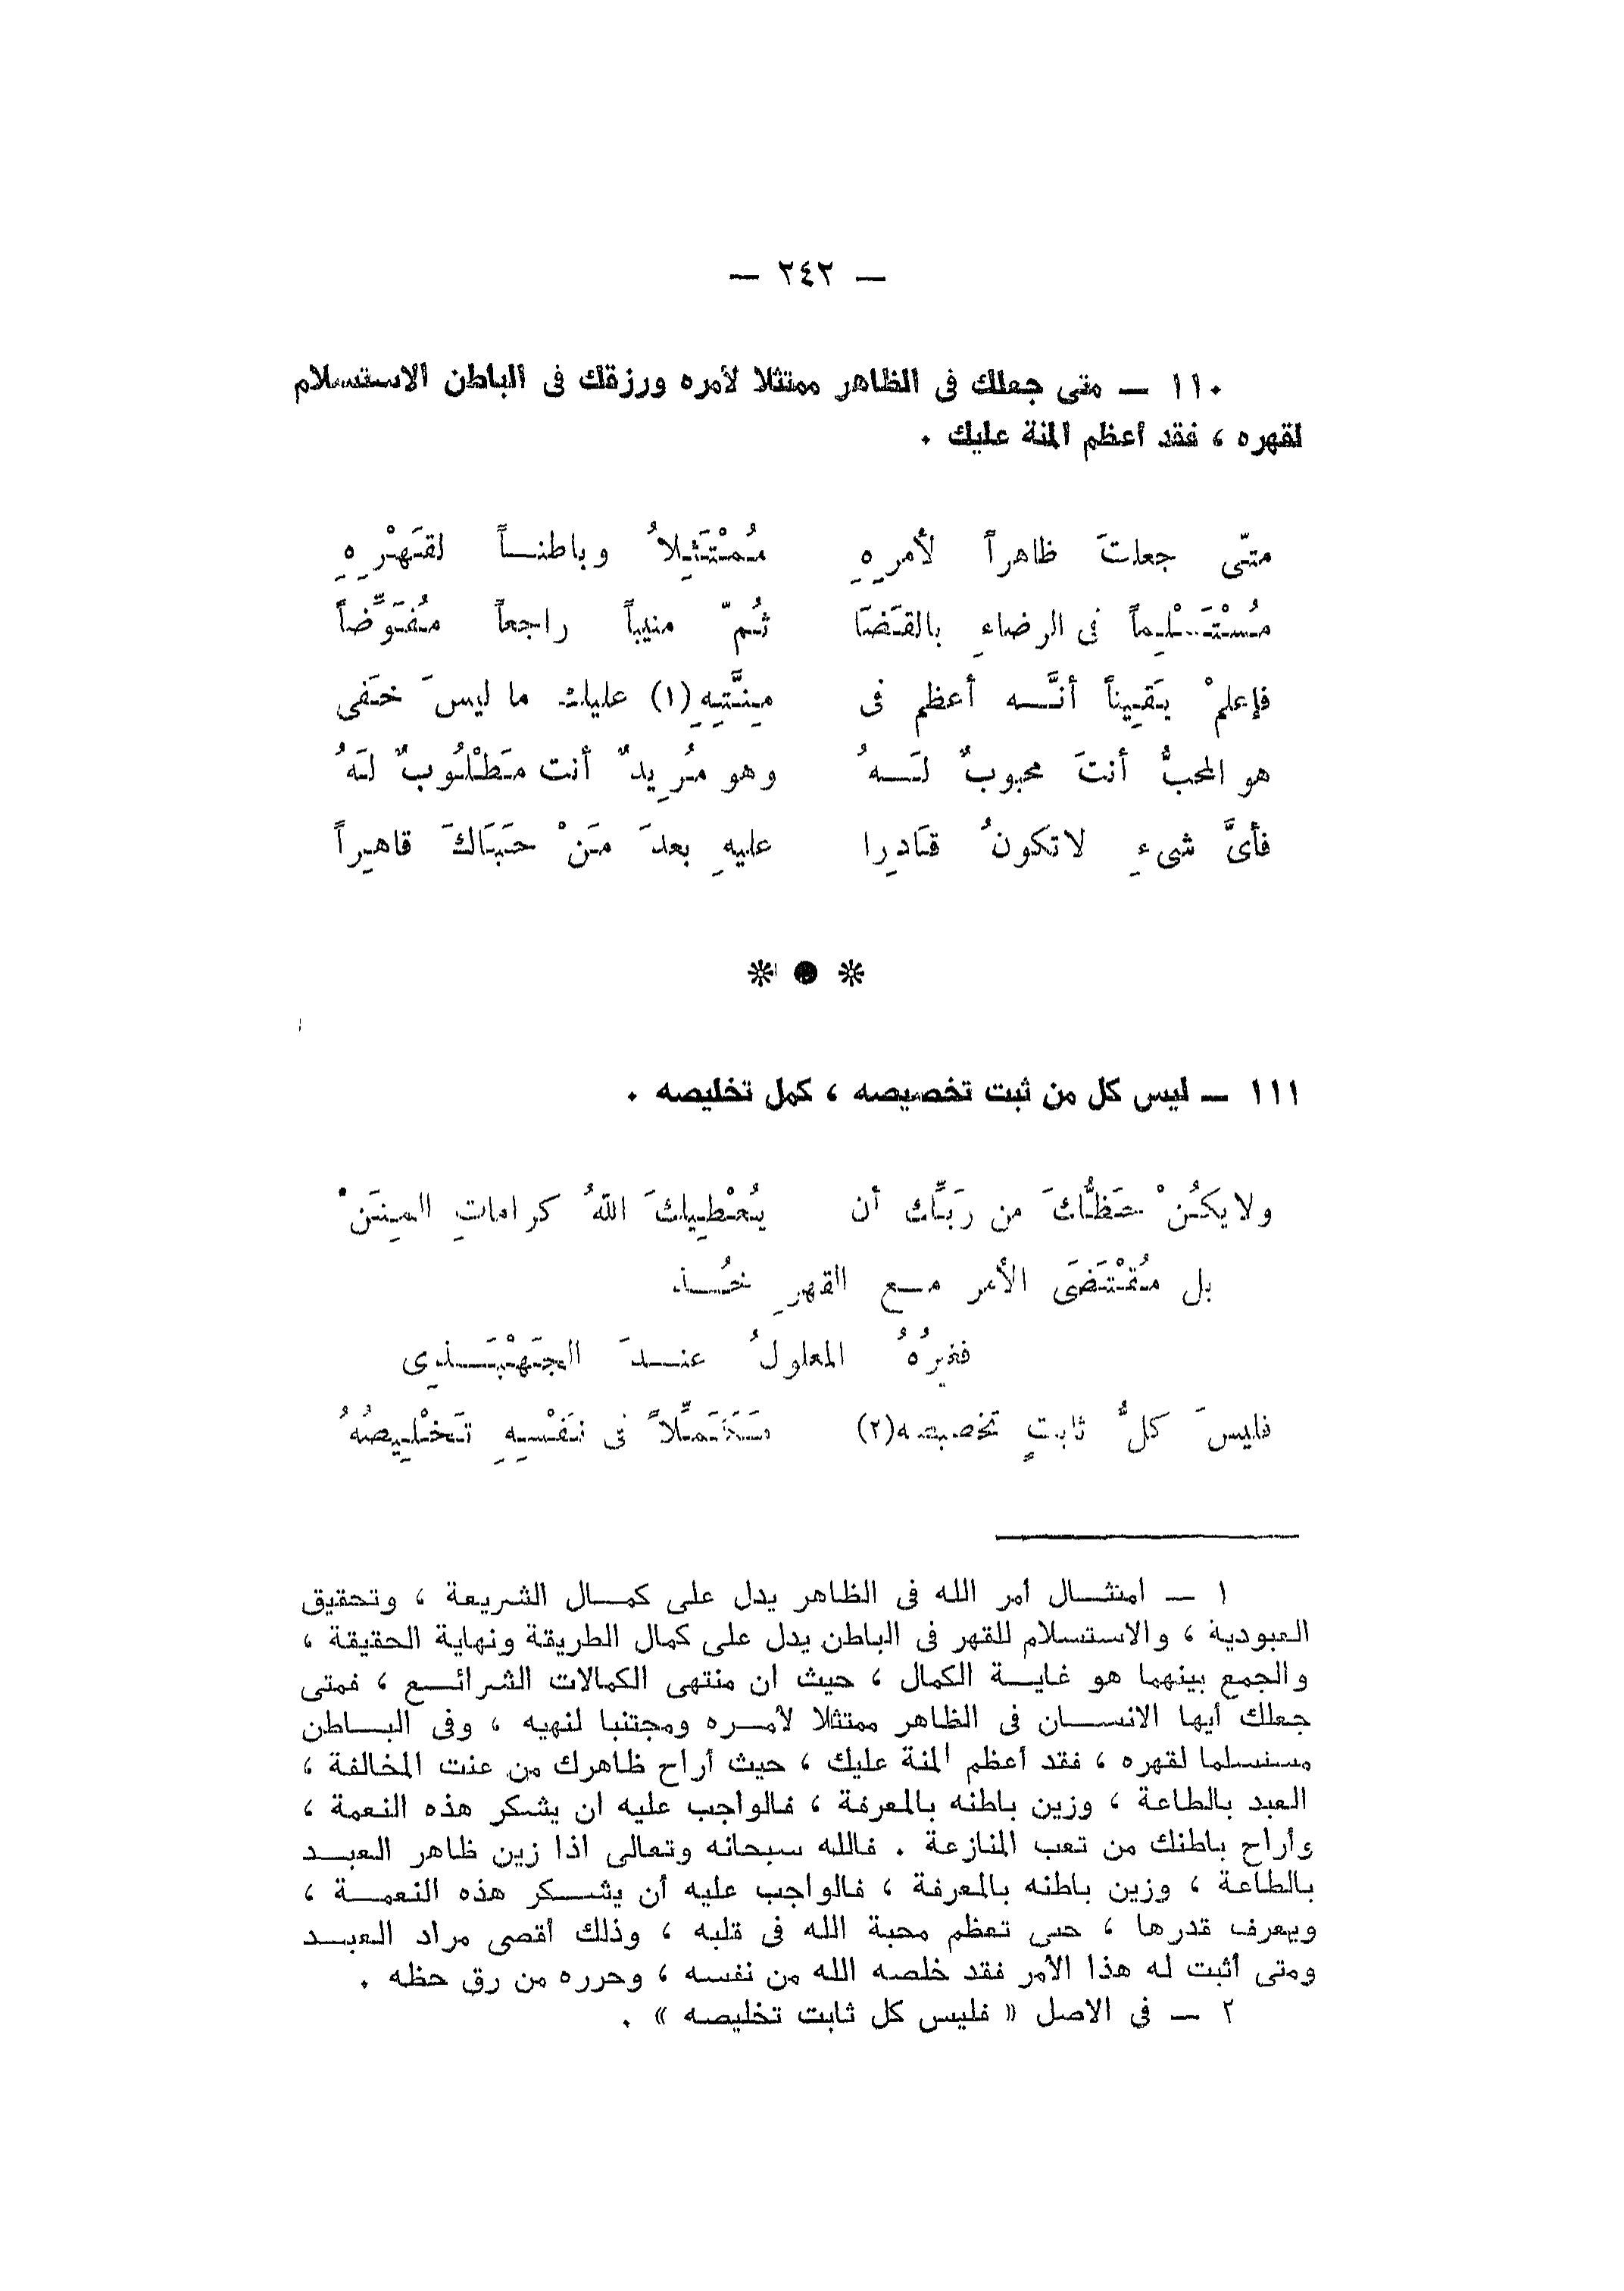 — ٢٤٢ —
١١٠ — متى جعلك فى الظاهر ممتثلا لأمره ورزقك فى الباطن الاستسلام
لقهره ، فقد أعظم المنة عليك .
متّى جعلتَ ظاهراً لأمرِهِ مُمْتَثِلاُ وباطنــاً لقَهْرِهِ
مُسْتَسْلِماً فى الرضاءِ بالقَضَا ثُمّ منيباً راجعاً مُفَوِّضاً
فإعلمْ يَقِيناً أنَّــه أعظم فى مِنَّتِهِ(١) عليك ما ليسَ خَفى
هو المحبُّ أنتَ محبوبٌ لَــهُ وهو مُرِيدٌ أنت مَطْلُوبٌ لَهُ
فأىَّ شىءٍ لاتكونُ قَادِرا عليهِ بعدَ مَنْ حَبَاكَ قاهِراً
١١١ — ليس كل من ثبت تخصيصه ، كمل تخليصه .
ولايكُنْ حَظُّكَ من رَبِّك أن يُعْطِيكَ اللهُ كراماتِ المِنَنْ
بل مُقْتَضَى الأمر مــع القهرِ خُــذ
فغيرُهُ المعلولُ عنــدَ الجَهْبَــذِى
فليسَ كلُّ ثابتٍ تخصيصه(٢) مُكَمِّلاً فى نَفْسِهِ تَخْلِيصُهُ
١ — امتثــال أمر الله فى الظاهر يدل على كمــال الشريعة ، وتحقيق
العبودية ، والاستسلام للقهر فى الباطن يدل على كمال الطريقة ونهاية الحقيقة ،
والجمع بينهما هو غايــة الكمال ، حيث ان منتهى الكمالات الشرائــع ، فمتى
جعلك أيها الانســان فى الظاهر ممتثلا لأمــره ومجتنبا لنهيه ، وفى البــاطن
مستسلما لقهره ، فقد أعظم المنة عليك ، حيث أراح ظاهرك من عنت المخالفة ،
العبد بالطاعة ، وزين باطنه بالمعرفة ، فالواجب عليه ان يشكر هذه النعمة ،
وأراح باطنك من تعب المنازعة . فالله سبحانه وتعالى اذا زين ظاهر العبــد
بالطاعة ، وزين باطنه بالمعرفة ، فالواجب عليه أن يشــكر هذه النعمــة ،
ويعرف قدرها ، حتى تعظم محبة الله فى قلبه ، وذلك أقصى مراد العبــد
ومتى أثبت له هذا الأمر فقد خلصه الله من نفسه ، وحرره من رق حظه .
٢ — فى الاصل « فليس كل ثابت تخليصه » .